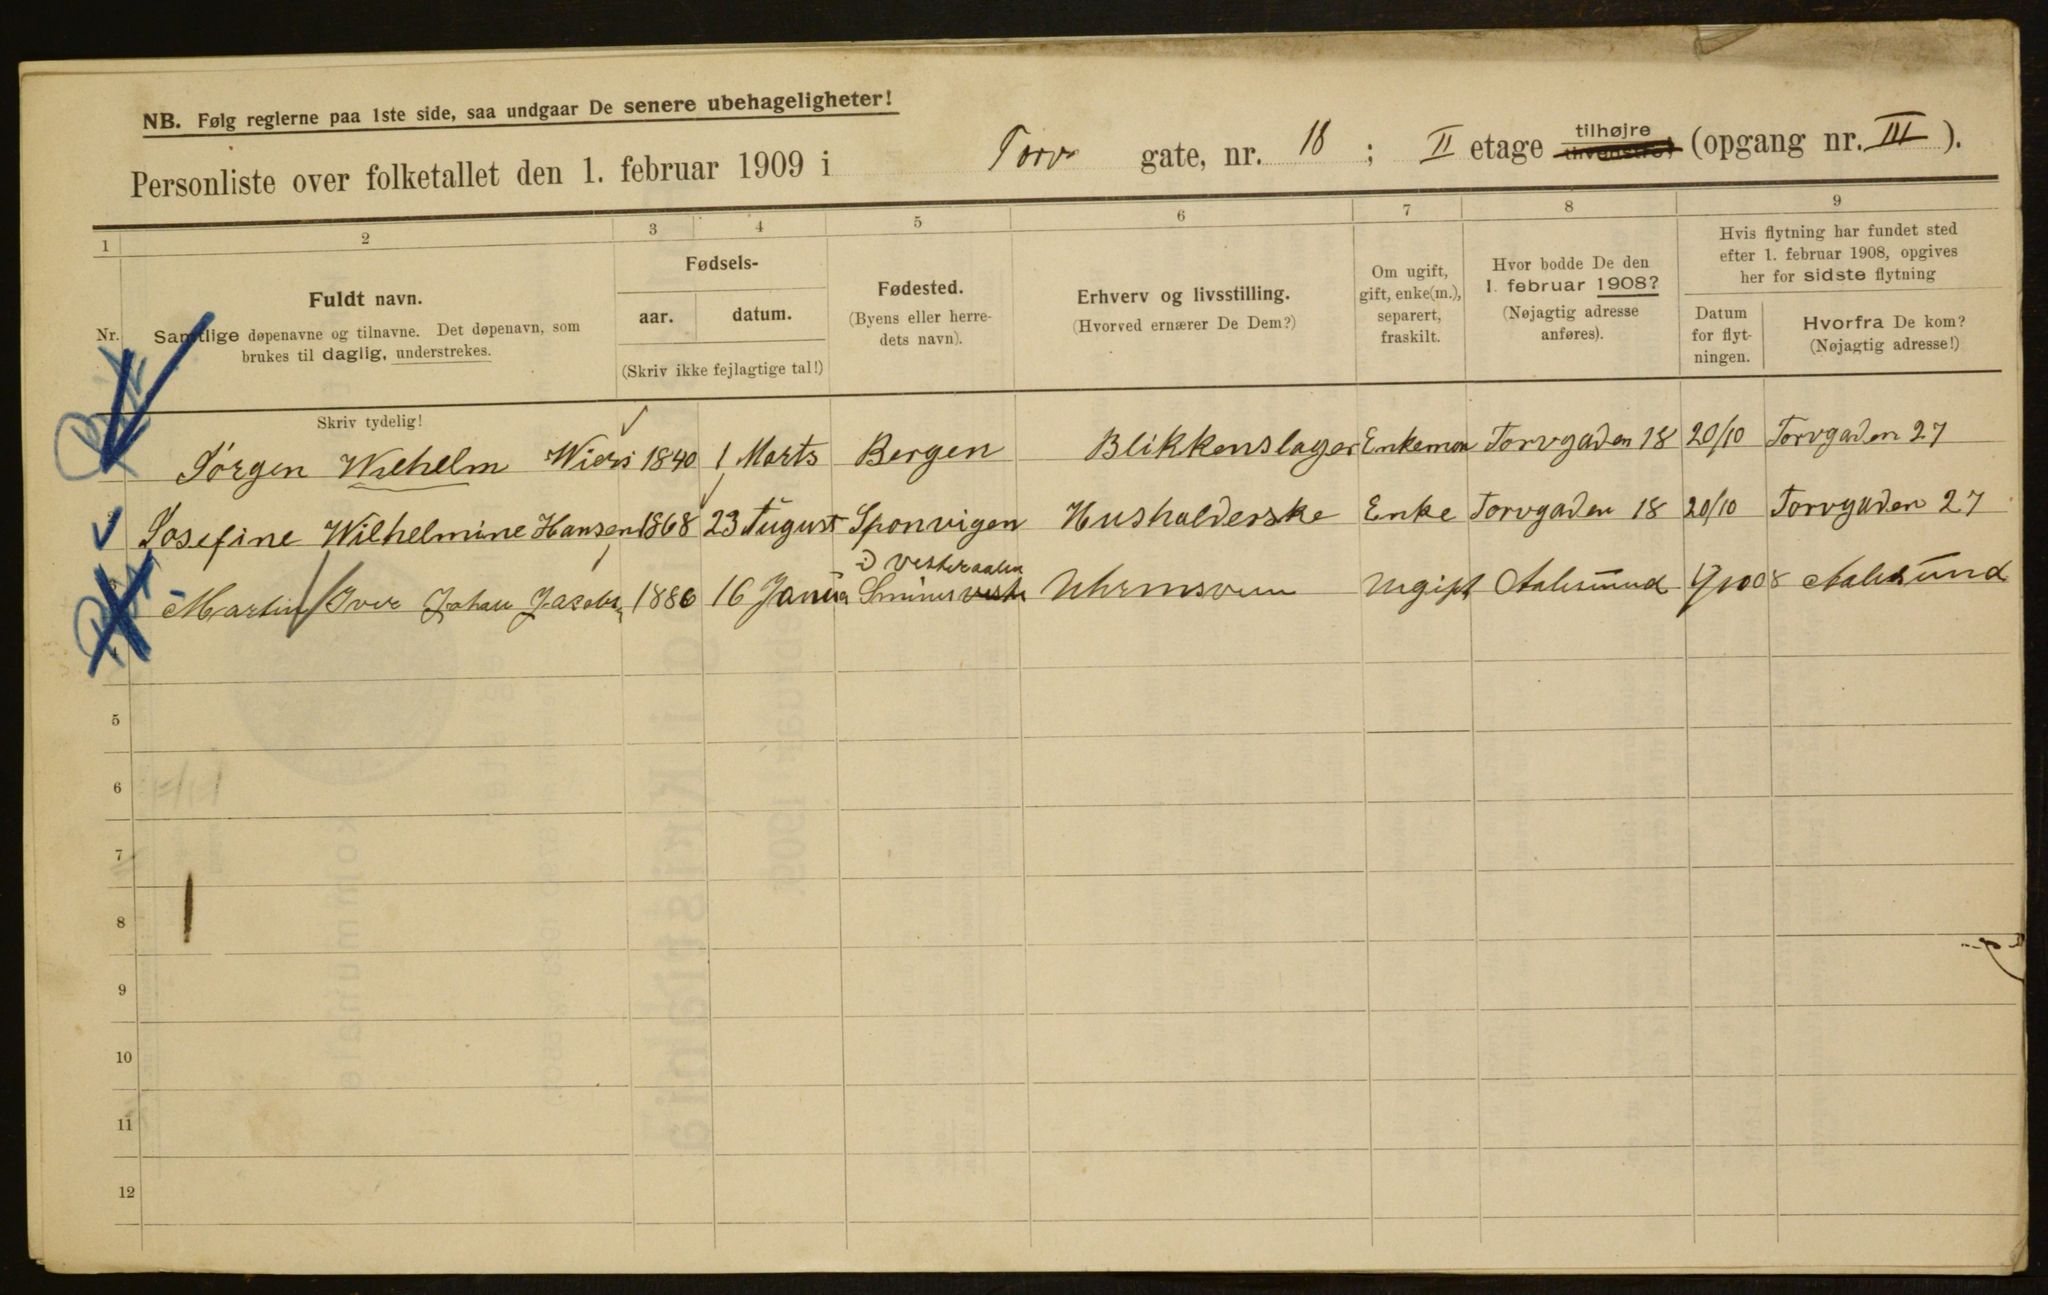 NB. Følg reglerne paa 1ste side, saa undgaar De senere ubehageligheter!
Personliste over folketallet den 1. februar 1909 i Torv gate, nr. 18 ; II etage tilhøjre tilvenstre, (opgang nr. III ).
1 2 3 4 5 6 7 8 9
Nr.
Fuldt navn.
Samtlige døpenavne og tilnavne. Det døpenavn, som
brukes til daglig, understrekes.
Fødsels-
aar. datum.
(Skriv ikke fejlagtige tal!)
Fødested.
(Byens eller herre-
dets navn).
Erhverv og livsstilling.
(Hvorved ernærer De Dem?)
Om ugift,
gift, enke(m.),
separert,
fraskilt.
Hvor bodde De den
1. februar 1908?
(Nøjagtig adresse
anføres).
Hvis flytning har fundet sted
efter 1. februar 1908, opgives
her for sidste flytning
Datum
for flyt-
ningen.
Hvorfra De kom?
(Nøjagtig adresse!)
Skriv tydelig!
Jørgen Wilhelm Wiers 1840 1 Marts Bergen Blikkenslager Enkeman Torvgaden 18 20/10 Torvgaden 27
Josefine Wilhelmine Hansen 1868 23 August Sponvigen Husholderske Enke Torvgaden 18 20/10 Torvgaden 27
i Vesteraalen
Martin Iver Johan Jacobs 1886 16 Janua Uhrmsven Ugift Aalesund Aalesund
5
6
7
8
9
10
11
12